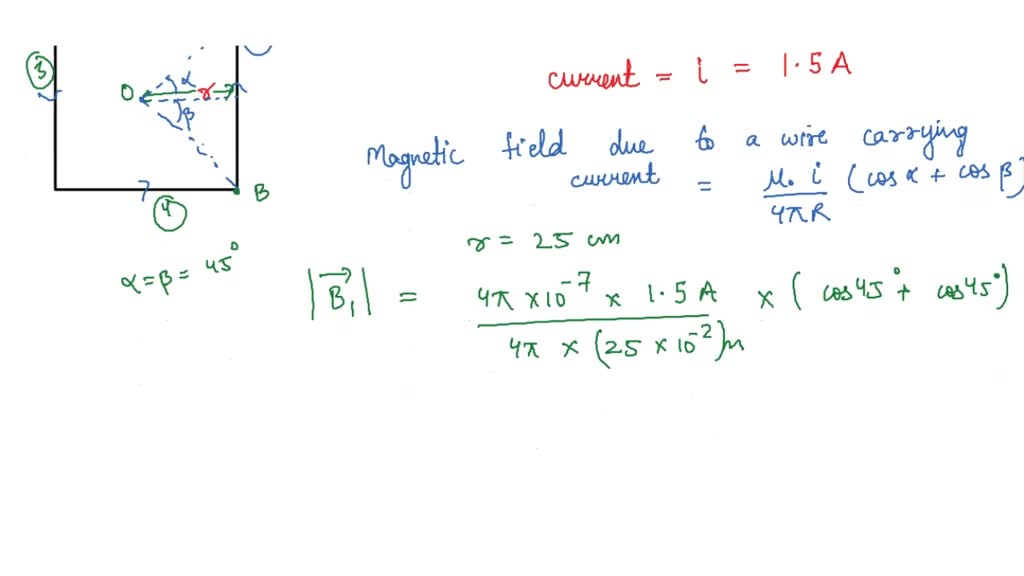 3
O
α
r
β
B
4
α = β = 45°
current = i = 1.5 A
Magnetic field due to a wire carrying
current = μ₀ i / 4πR (cos α + cos β)
r = 25 cm
|B₁⃗| = 4π × 10⁻⁷ × 1.5 A / 4π × (25 × 10⁻²) m × (cos 45° + cos 45°)